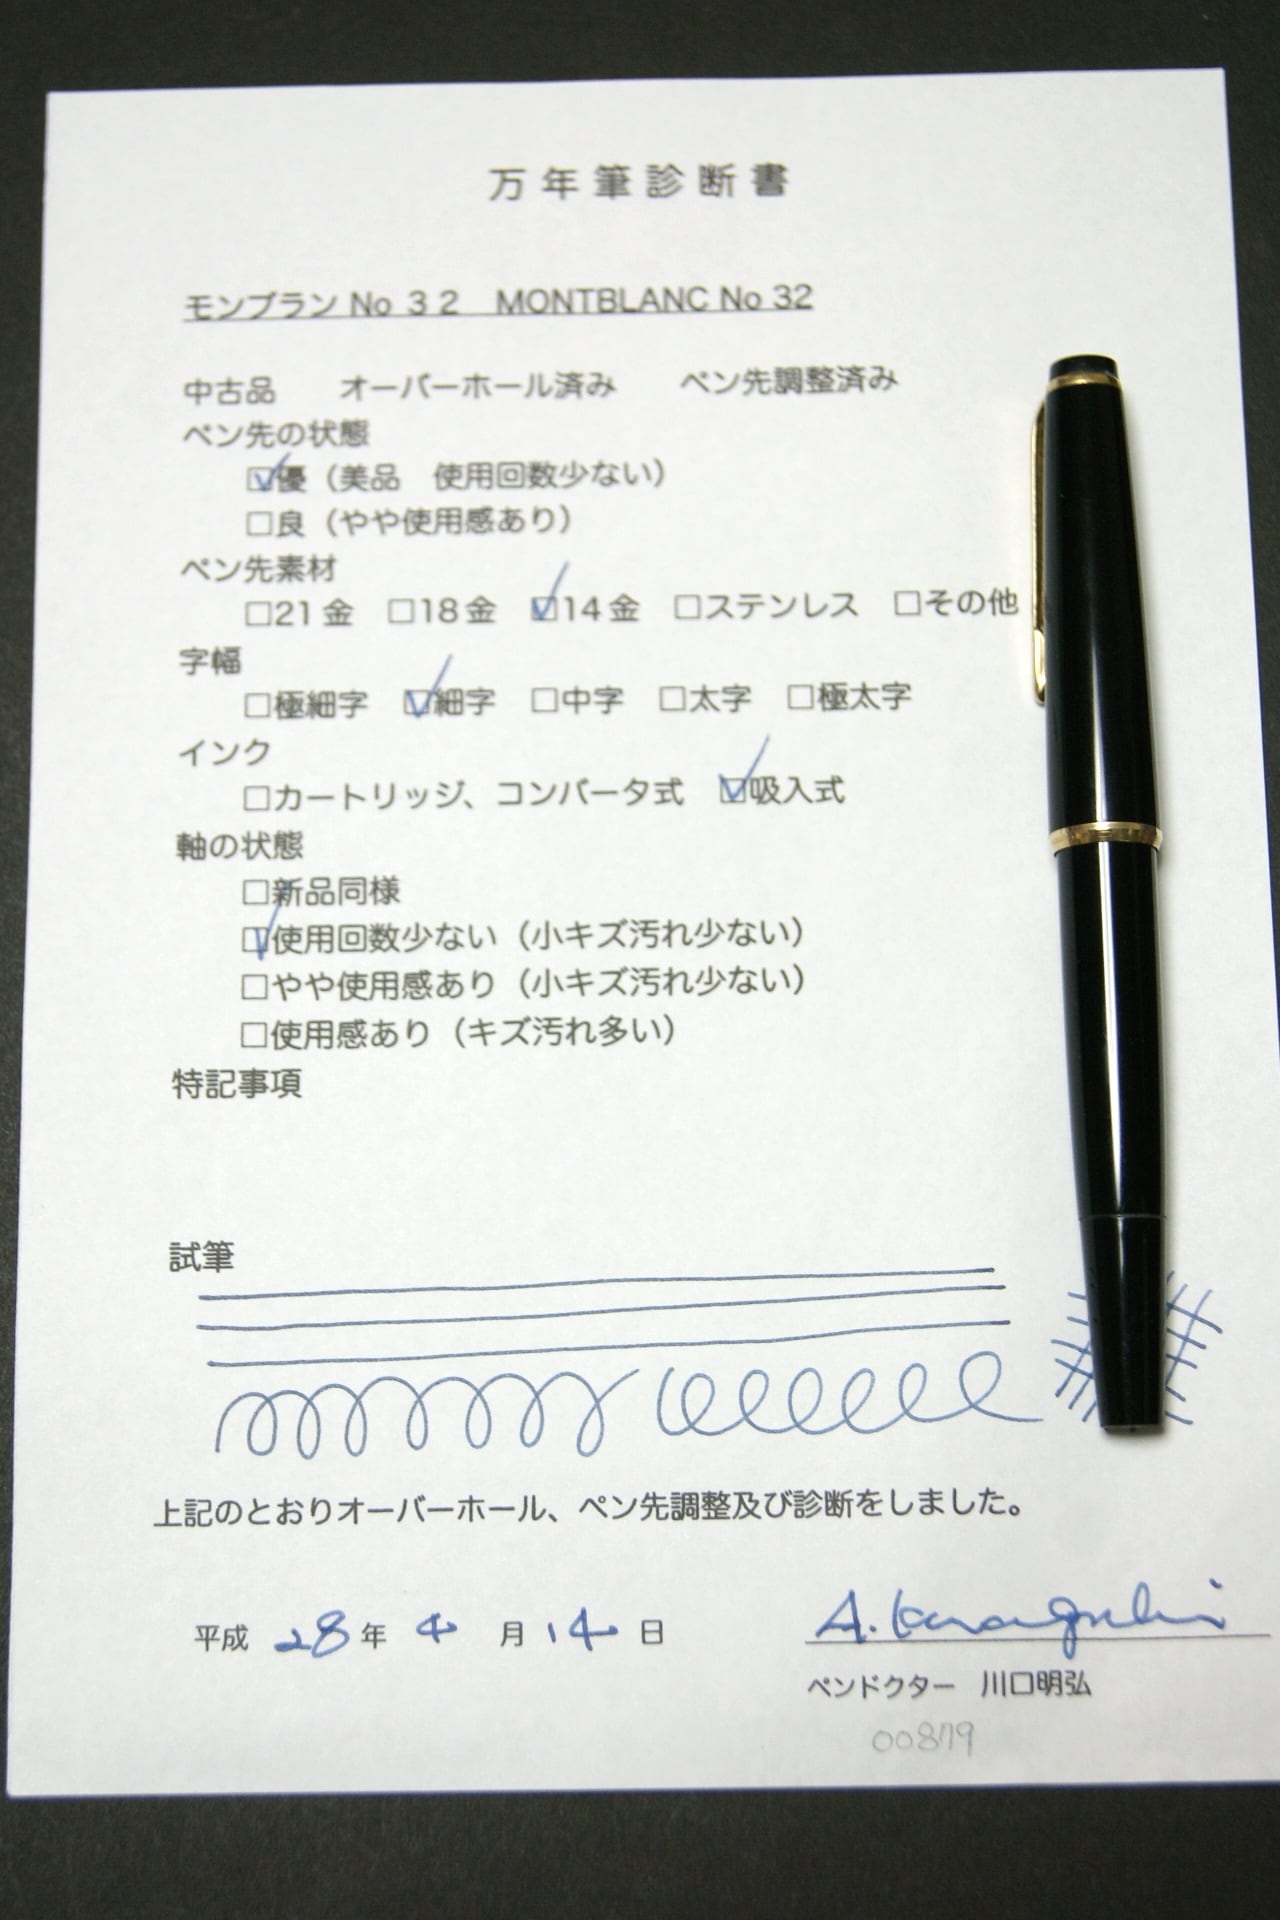 万年筆診断書
モンブラン No 32 MONTBLANC No 32
中古品 オーバーホール済み ペン先調整済み
ペン先の状態
☑優（美品 使用回数少ない）
□良（やや使用感あり）
ペン先素材
□21金 □18金 ☑14金 □ステンレス □その他
字幅
□極細字 ☑細字 □中字 □太字 □極太字
インク
□カートリッジ、コンバータ式 ☑吸入式
軸の状態
□新品同様
☑使用回数少ない（小キズ汚れ少ない）
□やや使用感あり（小キズ汚れ少ない）
□使用感あり（キズ汚れ多い）
特記事項
試筆
上記のとおりオーバーホール、ペン先調整及び診断をしました。
平成 28年 4月 14日 A. Kawaguchi
ペンドクター 川口明弘
00879